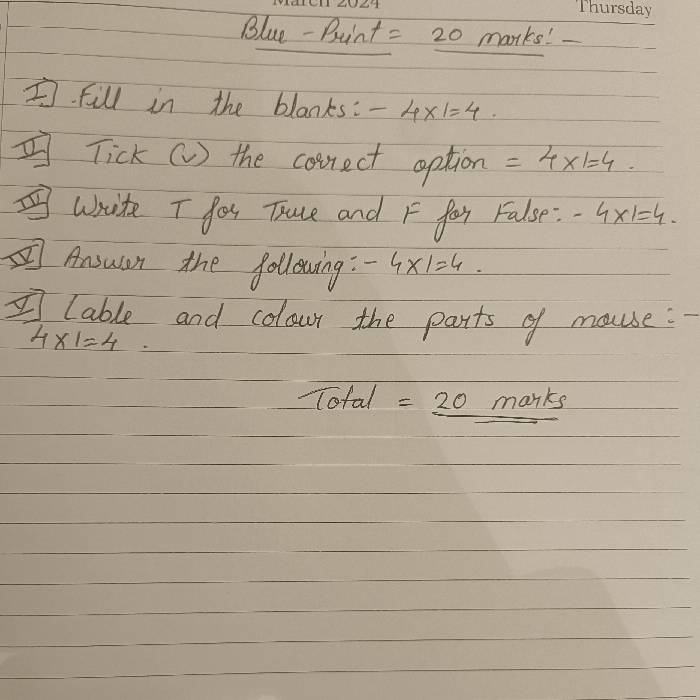 March 2024
Thursday
Blue - Print = 20 marks! -
I] Fill in the blanks: - 4x1=4.
II] Tick (✓) the correct option = 4x1=4.
III] Write T for True and F for False: - 4x1=4.
IV] Answer the following: - 4x1=4.
V] Lable and colour the parts of mouse: -
4x1=4.
Total = 20 marks